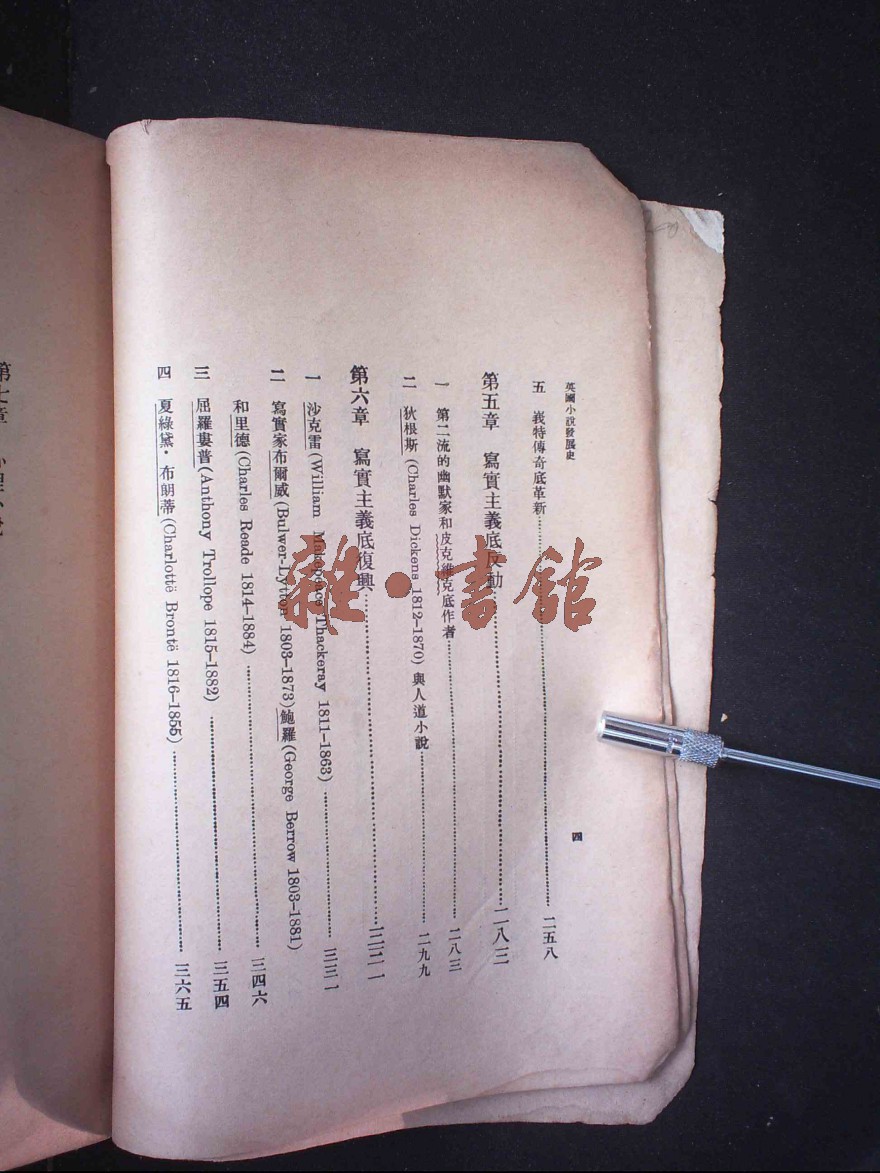 英國小說發展史
四
五 峩特傳奇底革新……二五八
第五章 寫實主義底反動……二八三
一 第二流的幽默家和皮克維克底作者……二八三
二 狄根斯(Charles Dickens 1812–1870)與人道小說……二九九
第六章 寫實主義底復興……三三一
一 沙克雷(William Makepeace Thackeray 1811–1863)……三三一
二 寫實家布爾威(Bulwer-Lytton 1803–1873)鮑羅(George Berrow 1803–1881)
和里德(Charles Reade 1814–1884)……三四六
三 屈羅婁普(Anthony Trollope 1815–1882)……三五四
四 夏綠黛·布朗蒂(Charlotte Brontë 1816–1855)……三六五
第七章
雜·書館